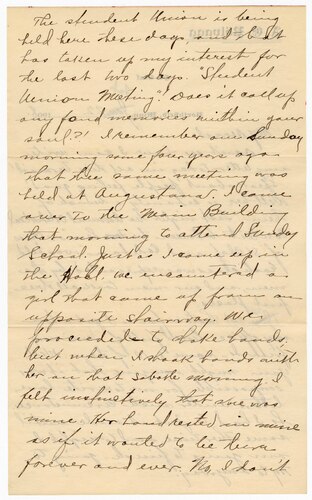 The student Union is being
held here these days, and it
has taken up my interest for
the last two days. "Student
Union Meeting." Does it call up
any fond memories within your
soul?! I remember one Sunday
morning some four years ago
that this same meeting was
held at Augustana. I came
over to the Main Building
that morning to attend Sunday
School. Just as I came up in
the Hall we encountered a
girl that came up from an
opposite stairway. We
proceeded to shake hands,
but when I shook hands with
her on that sabate morning I
felt instinctively that she was
mine. Her hand rested in mine
as if it wanted to be there
forever and ever. No, I don't